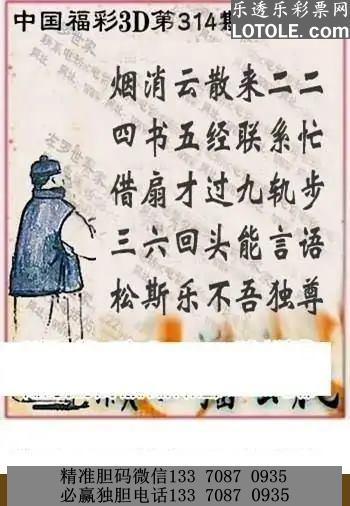 中国福彩3D第314期
乐透乐彩票网
WWW.LOTOLE.COM
烟消云散来二二
四书五经联系忙
借扇才过九轨步
三六回头能言语
松斯乐不吾独尊
精准胆码微信133 7087 0935
必赢独胆电话133 7087 0935